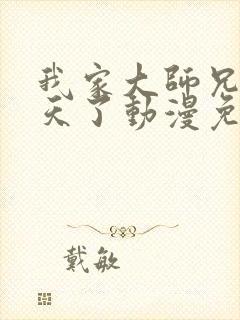 我家大師兄
天了動漫免
戴敏